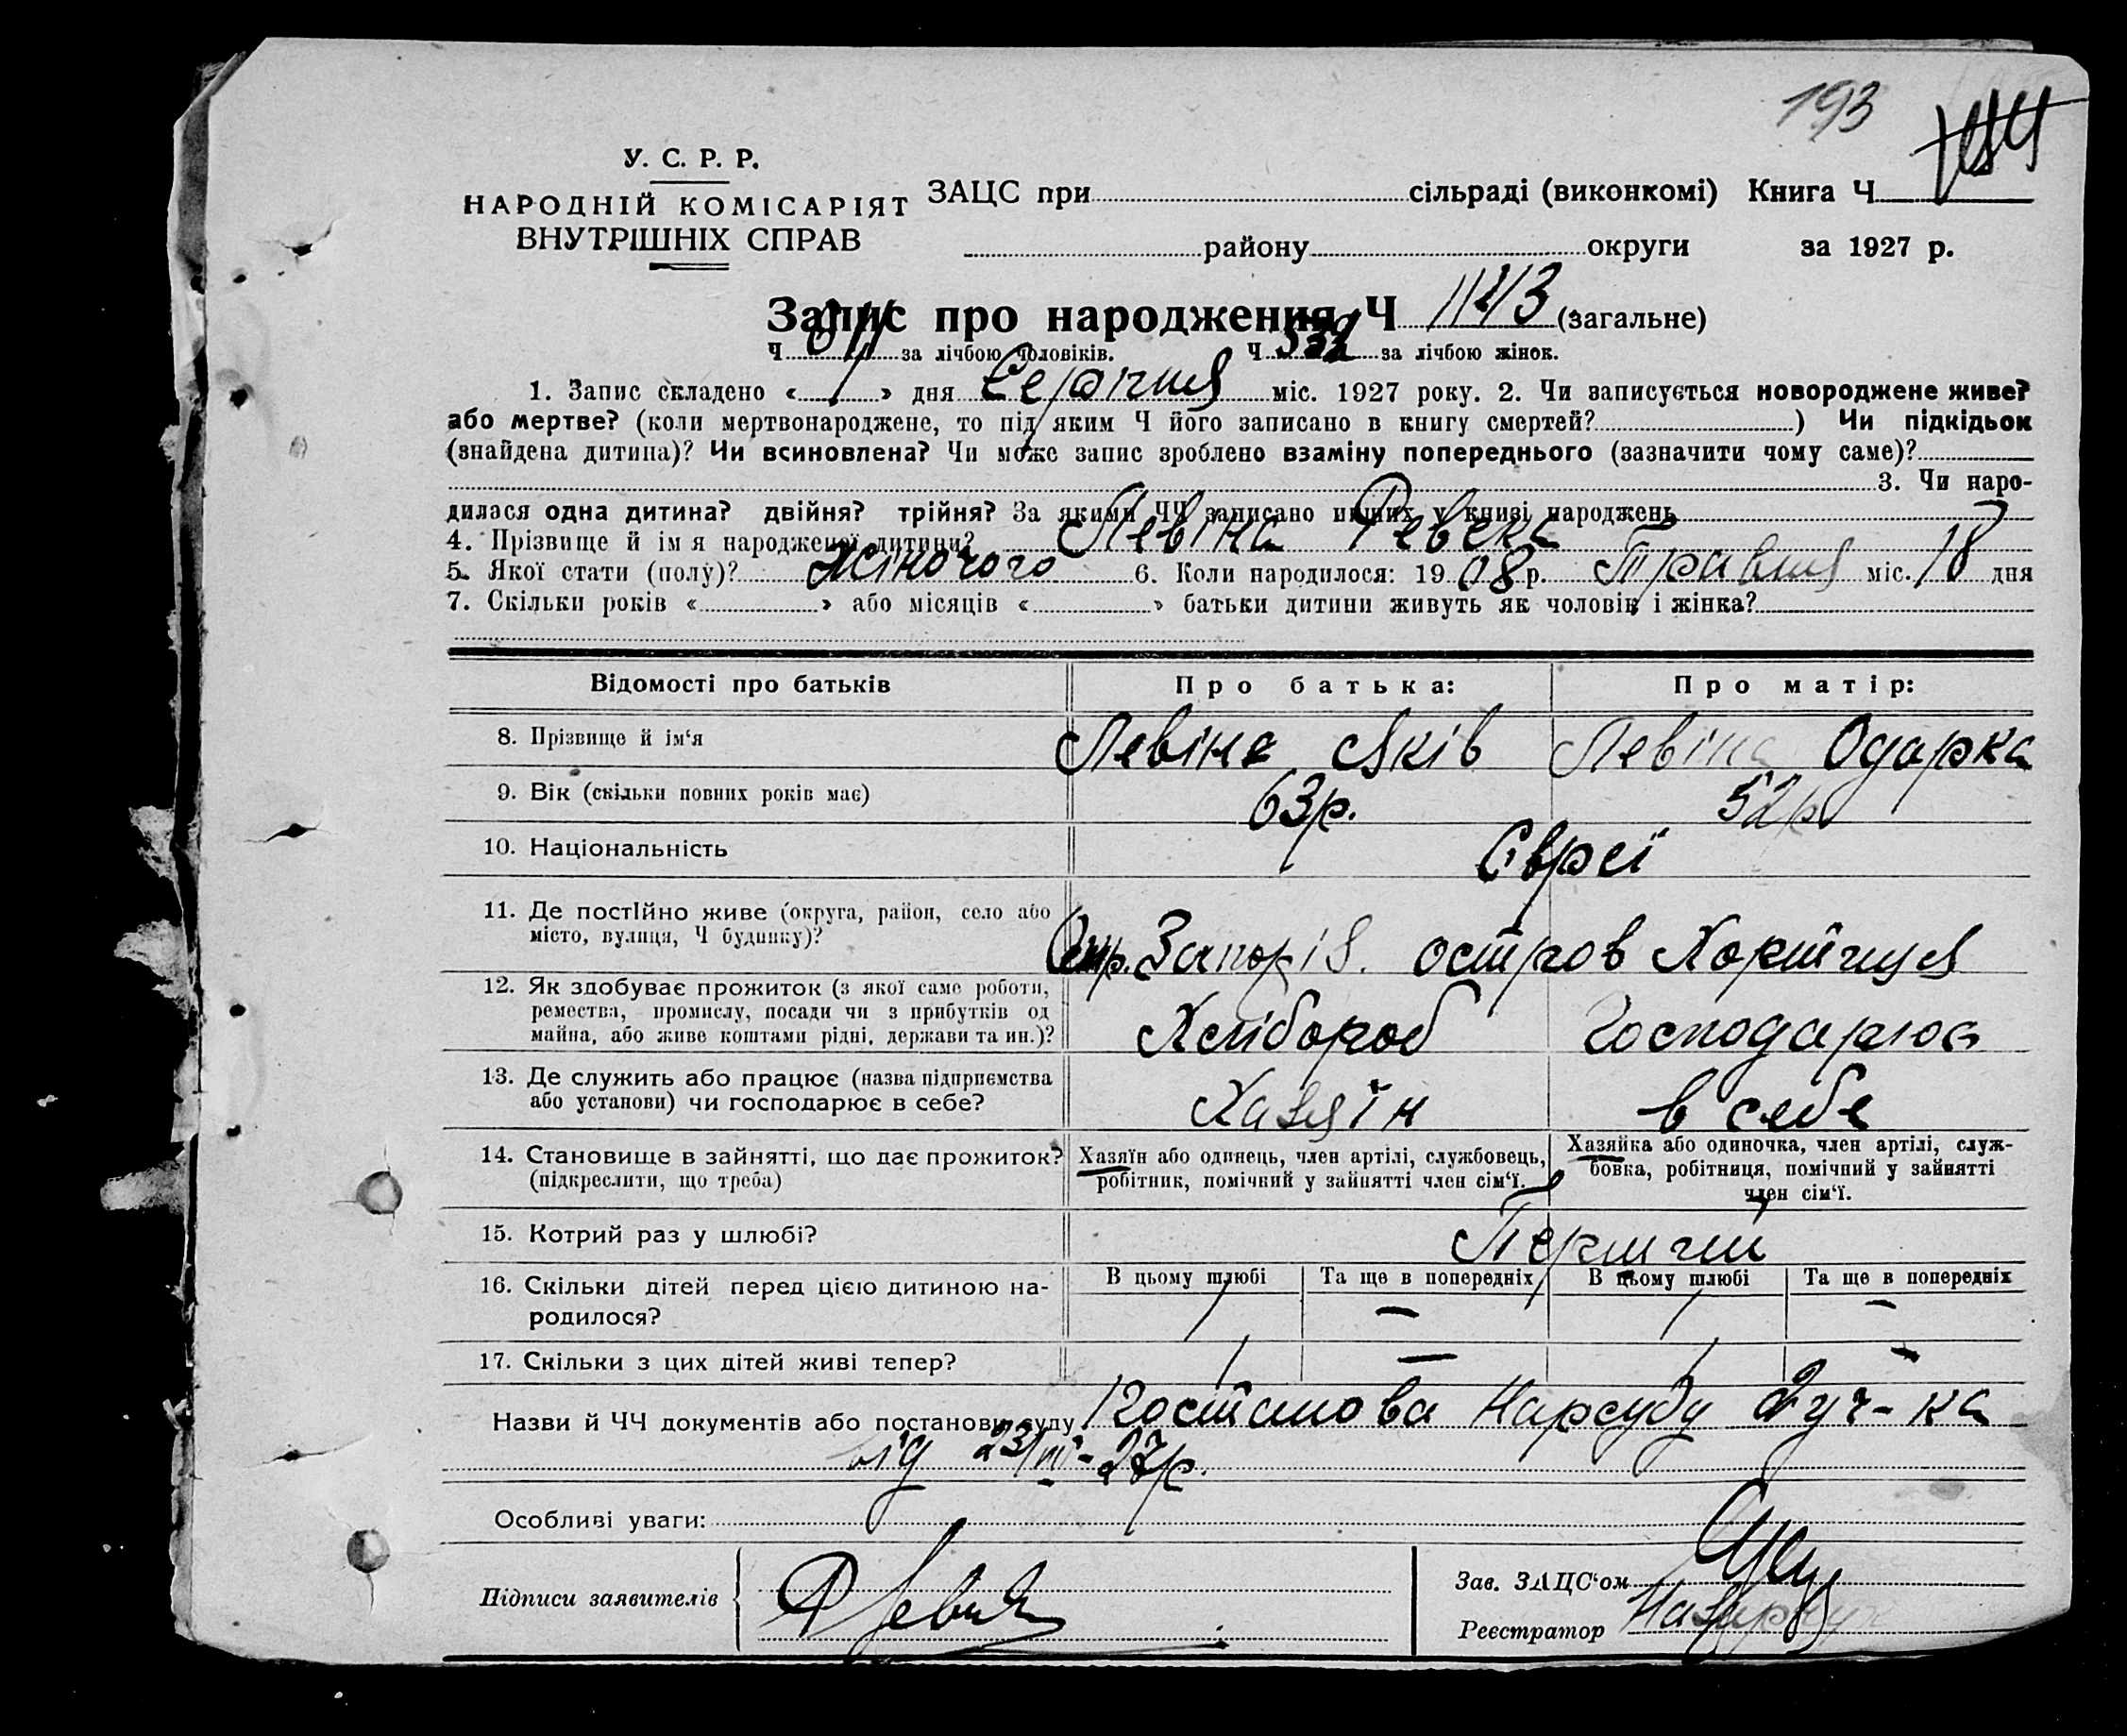 193
У. С. Р. Р.
НАРОДНІЙ КОМІСАРІЯТ
ВНУТРІШНІХ СПРАВ
ЗАЦС при сільраді (виконкомі) Книга Ч
району округи за 1927 р.
Запис про народження Ч (загальне)
Ч за лічбою чоловіків. Ч 532 за лічбою жінок.
1. Запис складено « 1 » дня Серпня міс. 1927 року. 2. Чи записується новороджене живе?
або мертве? (коли мертвонароджене, то під яким Ч його записано в книгу смертей? ) Чи підкідьок
(знайдена дитина)? Чи всиновлена? Чи може запис зроблено взаміну попереднього (зазначити чому саме)?
3. Чи наро-
дилася одна дитина? двійня? трійня? За якими ЧЧ записано инших у книзі народжень
4. Прізвище й ім я народженої дитини? Левіна Ревека
5. Якої стати (полу)? Жіночого 6. Коли народилося: 1908 р. Травня міс. 18 дня
7. Скільки років « » або місяців « » батьки дитини живуть як чоловік і жінка?
Відомості про батьків Про батька: Про матір:
8. Прізвище й ім‘я Левіна Яків Левіна Одарка
9. Вік (скільки повних років має) 63р. 52р
10. Національність Євреї
11. Де постійно живе (округа, район, село або
місто, вулиця, Ч будинку)? Окр. Запоріз. остров Хортиця
12. Як здобуває прожиток (з якої саме роботи,
ремества, промислу, посади чи з прибутків од
майна, або живе коштами рідні, держави та ин.)? Хлібороб Господарює
13. Де служить або працює (назва підприємства
або установи) чи господарює в себе? Хазяїн в себе
14. Становище в зайнятті, що дає прожиток?
(підкреслити, що треба)
Хазяїн або одинець, член артілі, службовець,
робітник, помічний у зайнятті член сім‘ї.
Хазяйка або одиночка, член артілі, служ-
бовка, робітниця, помічний у зайнятті
член сім‘ї.
15. Котрий раз у шлюбі? Перший
16. Скільки дітей перед цією дитиною на-
родилося?
В цьому шлюбі Та ще в попередніх В цьому шлюбі Та ще в попередніх
1 — 1 —
17. Скільки з цих дітей живі тепер? 1 — 1 —
Назви й ЧЧ документів або постанови суду Постанова Нарсуду 2 уч-ка
від 23/VII-27р.
Особливі уваги:
Підписи заявителів Р Левин
Зав. ЗАЦС‘ом
Реєстратор